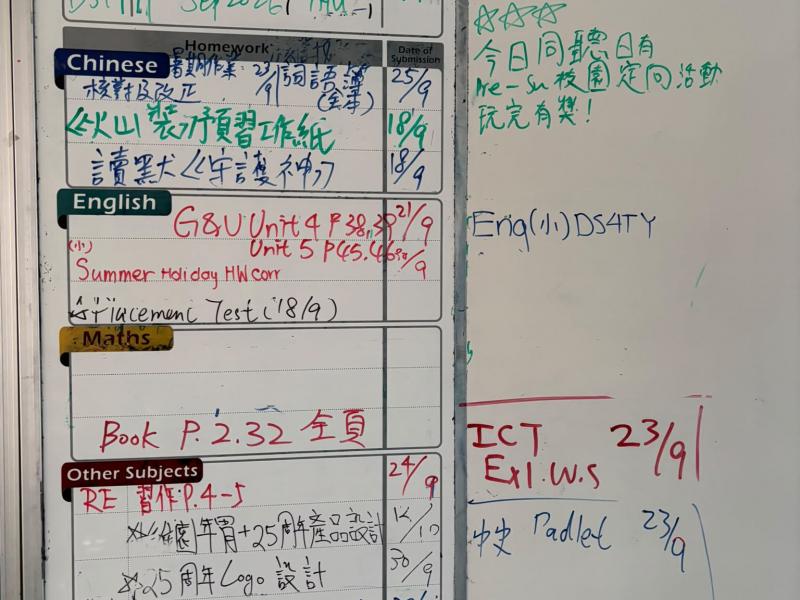 Sep 2026
Homework
Date of Submission
Chinese
暑期作業 23/9 詞語簿 25/9
核對及改正 (全本)
《火山裝》預習工作紙 18/9
讀默《守護神》 18/9
English
G&U Unit 4 P38,39 21/9
Unit 5 P45.46
(小)
Summer Holiday HW corr /9
☆Placement Test (18/9)
Maths
Book P. 2.32 全頁
Other Subjects
RE 習作P.4-5 24/9
25周年產品設計 /10
25周年Logo設計 30/9
☆☆☆
今日同聽日有
Pre-Su 校園定向活動
玩完有獎!
Eng(小) DS4TY
ICT 23/9
Ex1.W.S
中史 Padlet 23/9